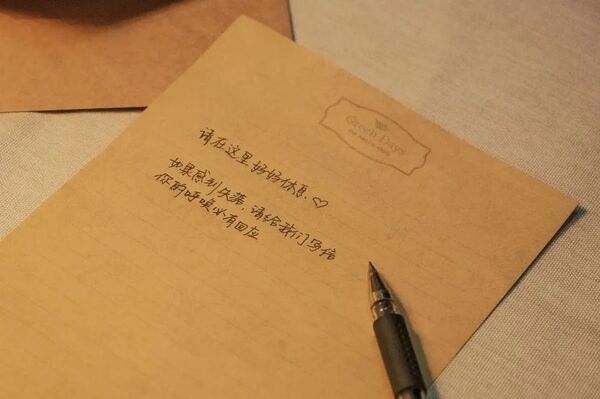 Green Days
请在这里好好休息♡
如果感到失落,请给我们写信
你的呼唤必有回应